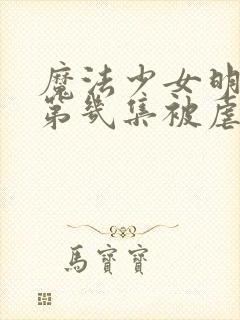 魔法少女明
第几集被虐
馬寶寶